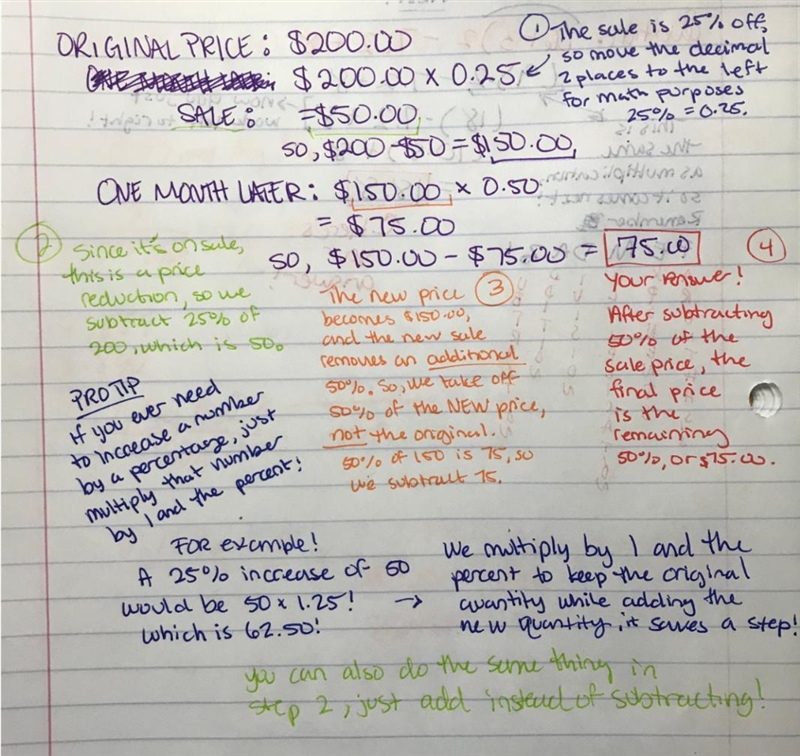 ORIGINAL PRICE: $200.00
$200.00 x 0.25
SALE: =$50.00
so, $200 - $50 = $150.00
① The sale is 25% off,
so move the decimal
2 places to the left
for math purposes
25% = 0.25.
ONE MONTH LATER: $150.00 x 0.50
= $75.00
so, $150.00 - $75.00 = 75.00
②
Since it's on sale,
this is a price
reduction, so we
subtract 25% of
200, which is 50.
③
The new price
becomes $150.00,
and the new sale
removes an additional
50%. So, we take off
50% of the NEW price,
not the original.
50% of 150 is 75, so
we subtract 75.
④
Your answer!
After subtracting
50% of the
sale price, the
final price
is the
remaining
50%, or $75.00.
PRO TIP
If you ever need
to increase a number
by a percentage, just
multiply that number
by 1 and the percent!
For example!
A 25% increase of 50
would be 50 x 1.25! →
which is 62.50!
We multiply by 1 and the
percent to keep the original
quantity while adding the
new quantity, it saves a step!
you can also do the same thing in
step 2, just add instead of subtracting!